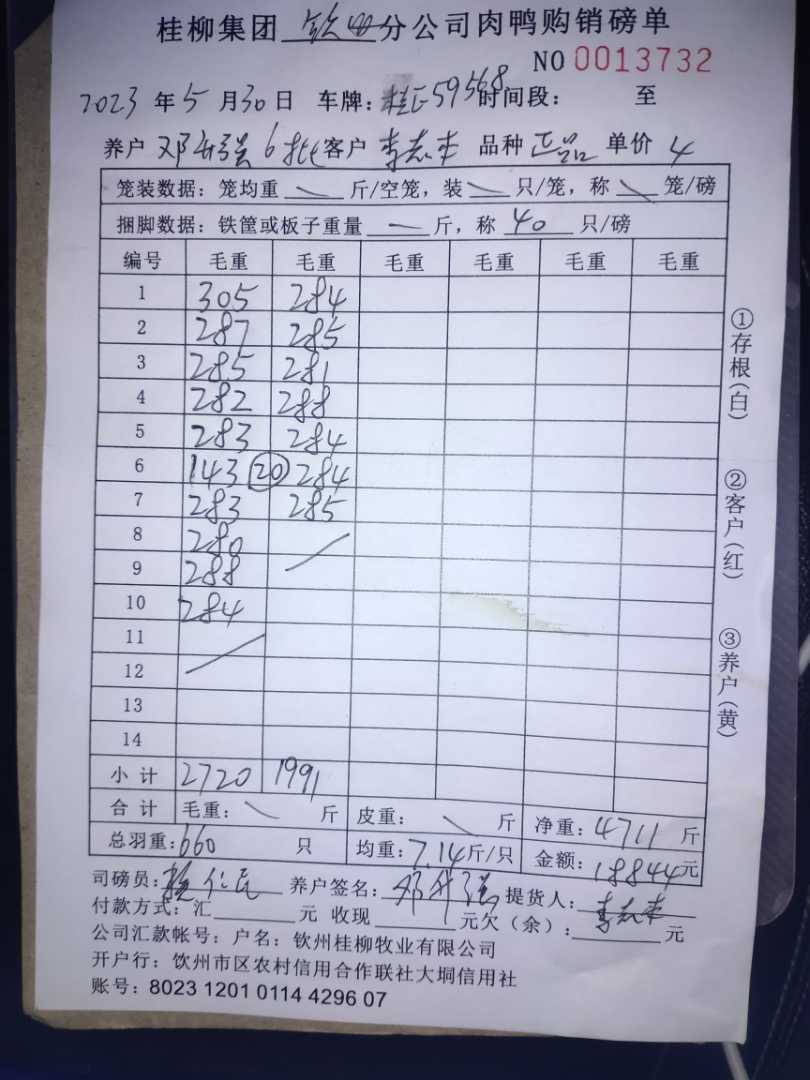 桂柳集团 钦州 分公司肉鸭购销磅单
NO 0013732
2023 年 5 月 30 日 车牌: 桂E59568 时间段: 至
养户 邓升强 6批 客户 李志丰 品种 正品 单价 4
笼装数据: 笼均重 斤/空笼, 装 只/笼, 称 笼/磅
捆脚数据: 铁筐或板子重量 一 斤, 称 40 只/磅
编号 毛重 毛重 毛重 毛重 毛重 毛重
1 305 284
2 287 285
3 285 281
4 282 288
5 283 284
6 143 20 284
7 283 285
8 280
9 288
10 284
11
12
13
14
小计 2720 1991
合计 毛重: 斤 皮重: 斤 净重: 4711 斤
总羽重: 660 只 均重: 7.14 斤/只 金额: 18844 元
司磅员: 仁民 养户签名: 邓升强 提货人: 李志丰
付款方式: 汇 元 收现 元欠(余): 元
公司汇款帐号: 户名: 钦州桂柳牧业有限公司
开户行: 饮州市区农村信用合作联社大垌信用社
账号: 8023 1201 0114 4296 07
①存根(白)
②客户(红)
③养户(黄)